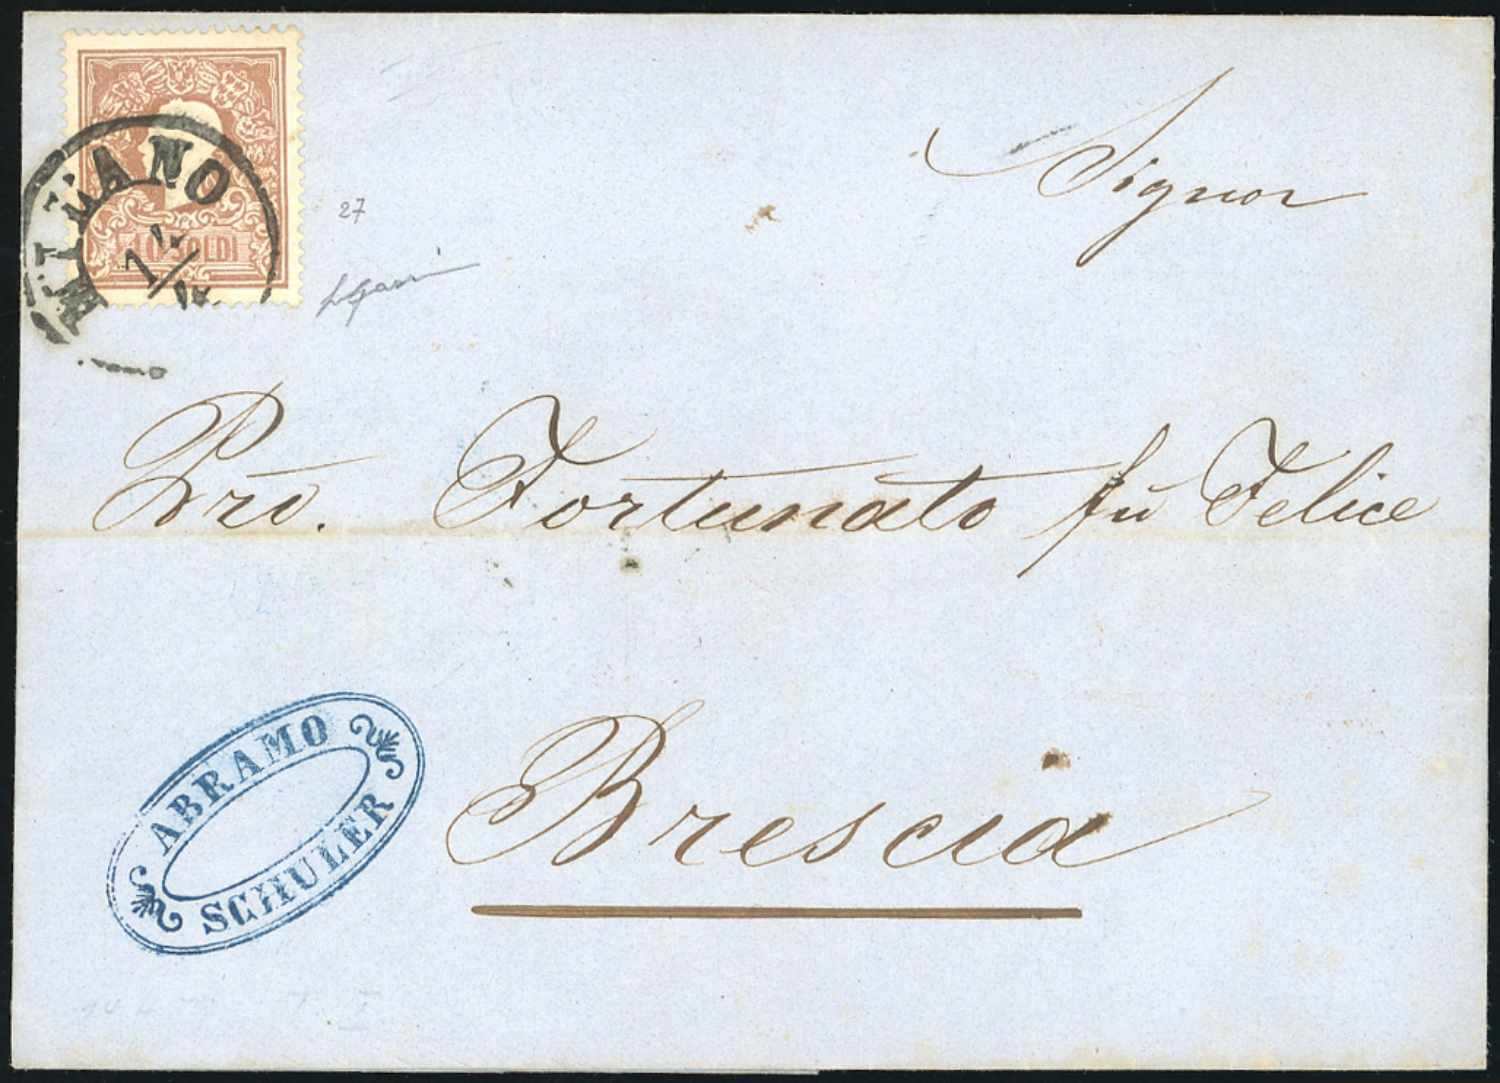 MILANO
10 SOLDI
27
Signor
Pro. Fortunato fu Felice
Brescia
ABRAMO
SCHULER